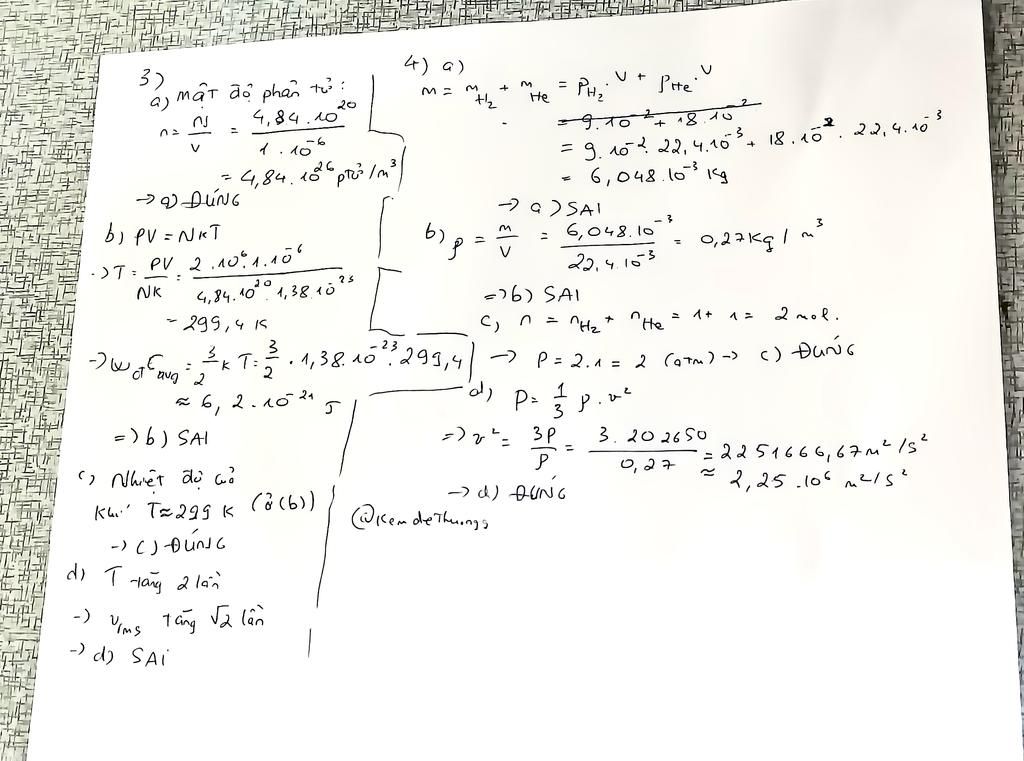 3)
a) Mật độ phân tử:
n = N/V = 4,84.10^20 / 1.10^-6
= 4,84.10^26 ptử/m^3
-> a) ĐÚNG
b) PV = NkT
-> T = PV/Nk = 2.10^6.1.10^-6 / 4,84.10^20.1,38.10^-23
= 299,4 K
-> Wđ Eavg = 3/2 k T = 3/2 . 1,38.10^-23 . 299,4
≈ 6,2.10^-21 J
=> b) SAI
c) Nhiệt độ của
khí T ≈ 299 K (ở (b))
-> c) ĐÚNG
d) T tăng 2 lần
-> vrms tăng √2 lần
-> d) SAI
4) a)
m = mH2 + mHe = ρH2.V + ρHe.V
= 9.10^-2 + 18.10^-2
= 9.10^-2. 22,4.10^-3 + 18.10^-2. 22,4.10^-3
= 6,048.10^-3 kg
-> a) SAI
b) ρ = m/V = 6,048.10^-3 / 22,4.10^-3 = 0,27kg/m^3
=> b) SAI
c, n = nH2 + nHe = 1 + 1 = 2 mol.
-> P = 2.1 = 2 (atm) -> c) ĐÚNG
d) P = 1/3 ρ.v^2
=> v^2 = 3P/ρ = 3.202650 / 0,27 = 2251666,67 m^2/s^2
≈ 2,25.10^6 m^2/s^2
-> d) ĐÚNG